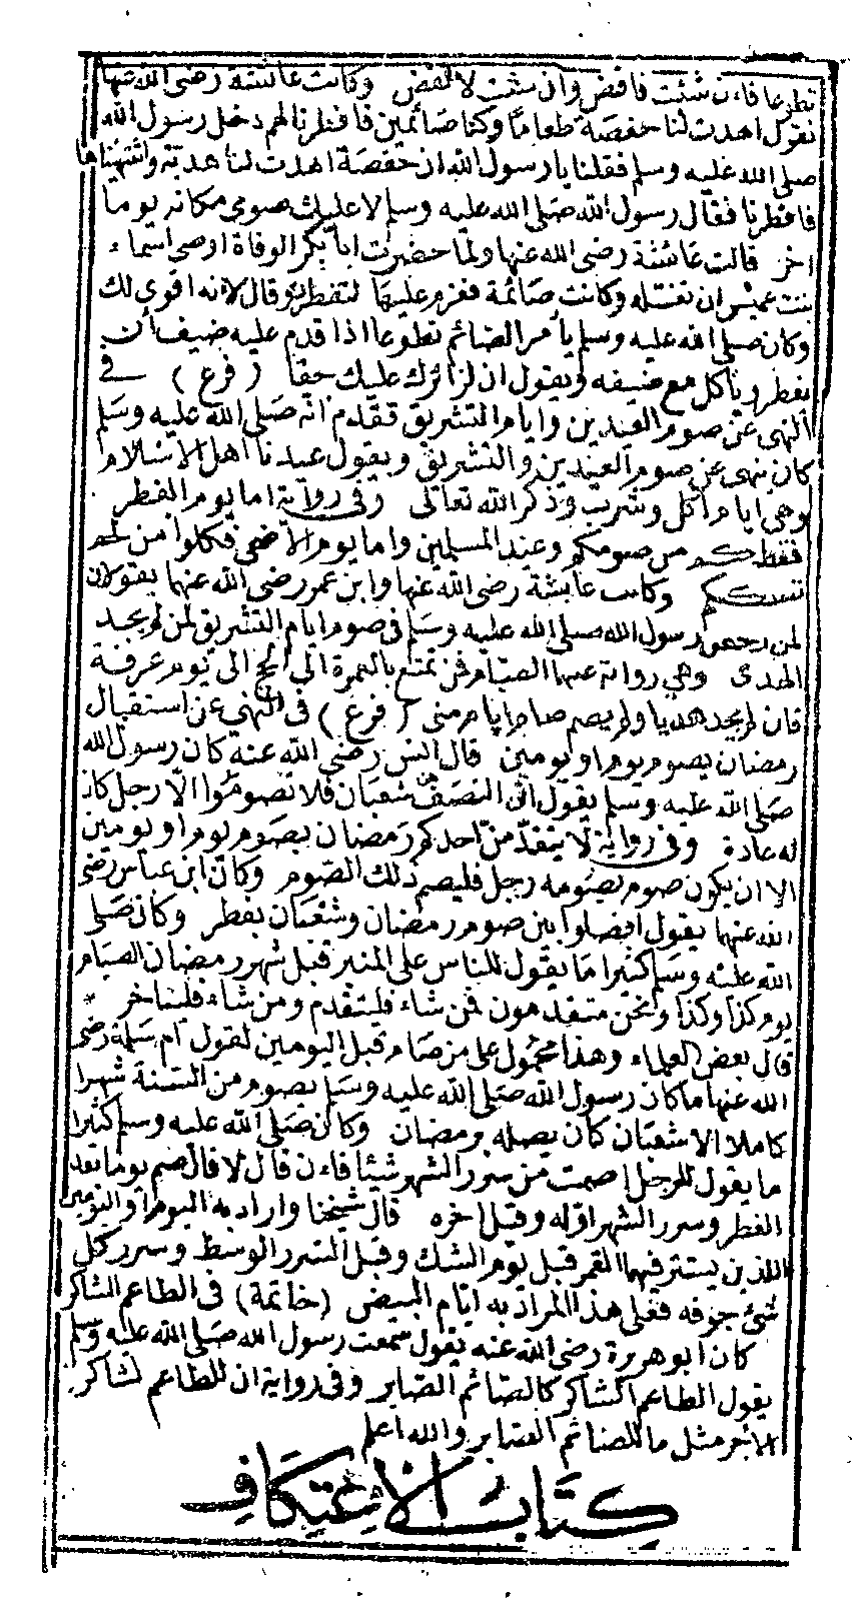 تطوعا فاءن شئت فاقض وان شئت لا تقض وكانت عائشة رضى الله عنها
تقول اهدت لنا حفصة طعاما وكنا صائمين فافطرنا ثم دخل رسول الله
صلى الله عليه وسلم فقلنا يا رسول الله ان حفصة اهدت لنا هدية واشتهيناها
فافطرنا فقال رسول الله صلى الله عليه وسلم لا عليك صومى مكانه يوما
اخر قالت عائشة رضى الله عنها ولما حضرت ابا بكر الوفاة اوصى اسماء
بنت عميس ان تغسله وكانت صائمة فعزم عليها لتفطرن وقال لانه اقوى لك
وكان صلى الله عليه وسلم يأمر الصائم تطوعا اذا قدم عليه ضيف أن
يفطر وياكل مع ضيفه ويقول ان لزائرك عليك حقا (فرع) فى
النهى عن صوم العيدين وايام التشريق تقدم انه صلى الله عليه وسلم
كان ينهى عن صوم العيدين والتشريق ويقول عيدنا اهل الاسلام
وهى ايام اكل وشرب وذكر الله تعالى وفى رواية اما يوم الفطر
ففطركم من صومكم وعيد المسلمين واما يوم الاضحى فكلوا من لحم
نسككم وكانت عائشة رضى الله عنها وابن عمر رضى الله عنهما يقولان
لم يرخص رسول الله صلى الله عليه وسلم فى صوم ايام التشريق لمن لم يجد
الهدى وفى رواية عنهما الصيام لمن تمتع بالعمرة الى الحج الى يوم عرفة
فان لم يجد هديا ولم يصم صام ايام منى (فرع) فى النهى عن استقبال
رمضان بصوم يوم او يومين قال انس رضى الله عنه كان رسول الله
صلى الله عليه وسلم يقول اذا انتصف شعبان فلا تصوموا الا رجل كان
له عادة وفى رواية لا يتقدمن احدكم رمضان بصوم يوم او يومين
الا ان يكون صوم يصومه رجل فليصم ذلك الصوم وكان ابن عباس رضى
الله عنهما يقول افصلوا بين صوم رمضان وشعبان بفطر وكان صلى
الله عليه وسلم كثيرا ما يقول للناس على المنبر قبل شهر رمضان الصيام
يوم كذا وكذا ونحن متقدمون فمن شاء فليتقدم ومن شاء فليتاخر *
قال بعض العلماء وهذا محمول على من صام قبل اليومين لقول ام سلمة رضى
الله عنها ما كان رسول الله صلى الله عليه وسلم يصوم من السنة شهرا
كاملا الا شعبان كان يصله برمضان وكان صلى الله عليه وسلم كثيرا
ما يقول للرجل اصمت من سرر الشهر شيئا فاءن قال لا قال صم يوما بعد
الفطر وسرر الشهر اوله وقيل اخره قال شيخنا واراد به اليوم او اليومين
اللذين يستتر فيهما القمر قبل يوم الشك وقيل السرر الوسط وسرر كل
شئ جوفه فعلى هذا المراد به ايام البيض (خاتمة) فى الطاعم الشاكر
كان ابو هريرة رضى الله عنه يقول سمعت رسول الله صلى الله عليه وسلم
يقول الطاعم الشاكر كالصائم الصابر وفى رواية ان للطاعم الشاكر
الاجر مثل ما للصائم الصابر والله اعلم
كتاب الاعتكاف